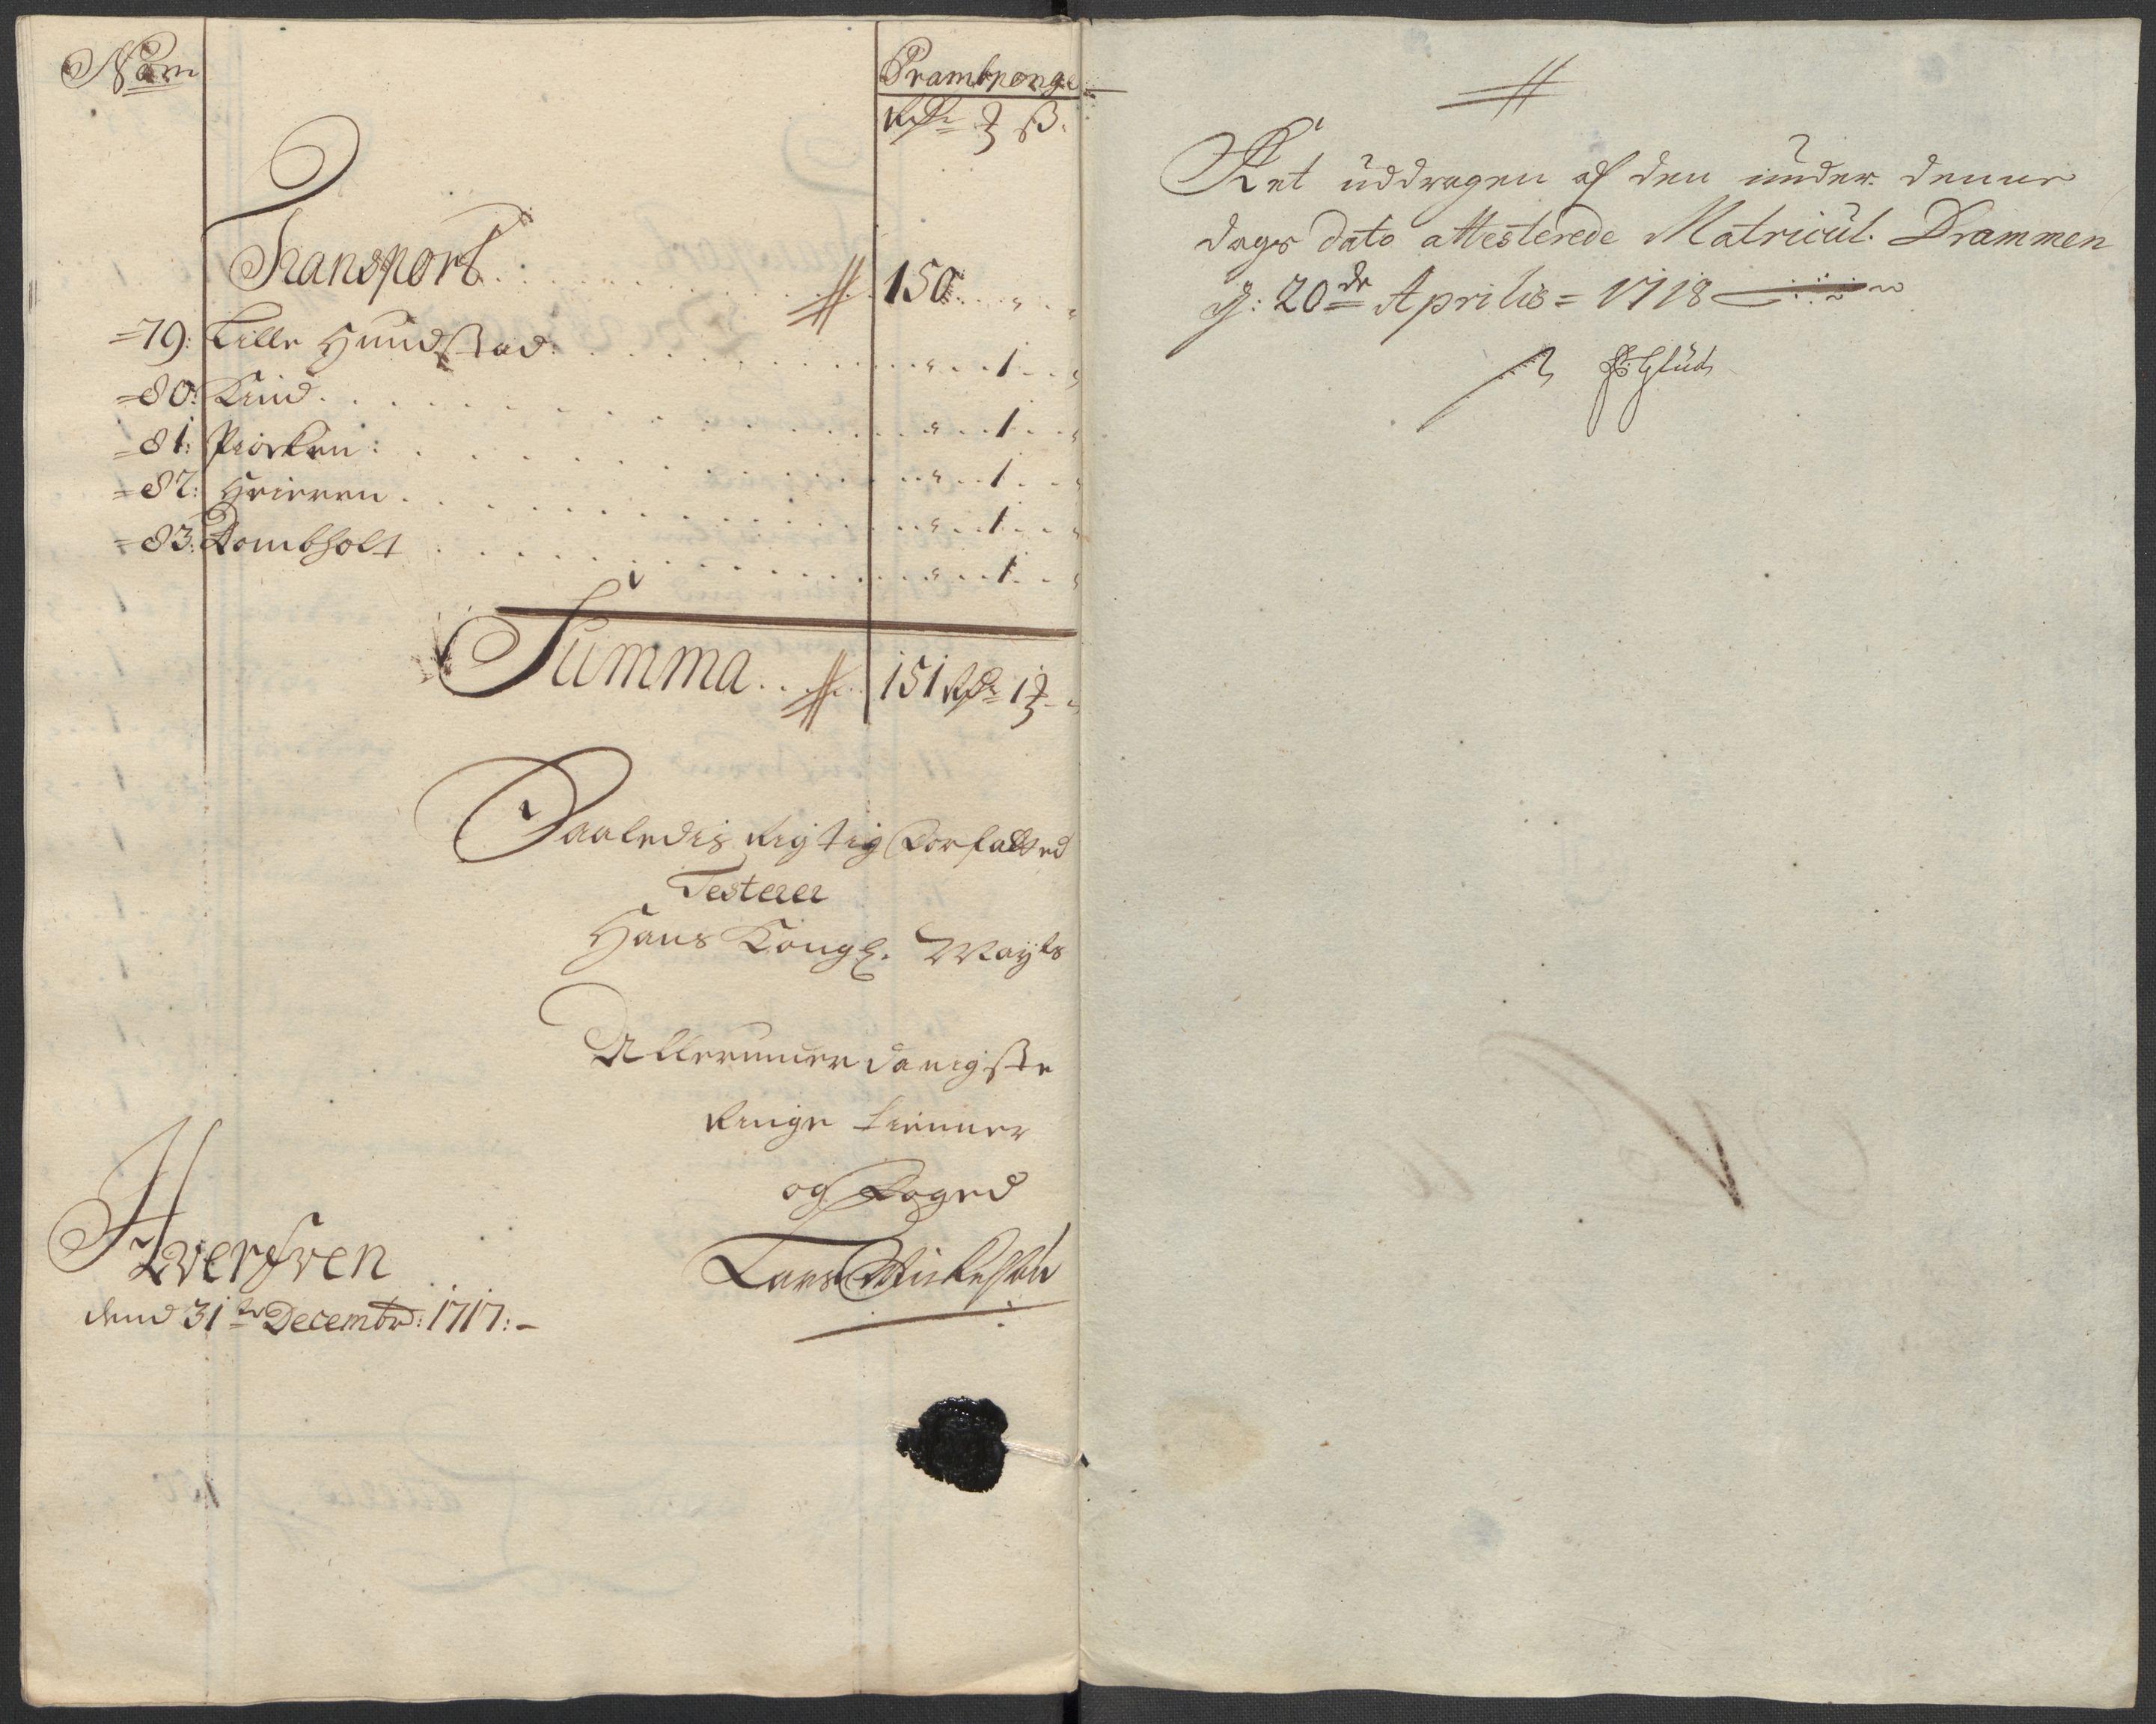 Nom
Prambpenge
Rdr ʒ ß.
Transport. . . . 150 . . " . . "
=79: Lille Hundstad: . . . " . . 1 . . "
=80: Lind . . . " . . 1 . . "
=81: Kiorken: . . . " . . 1 . . "
=82: Heieren . . . " . . 1 . . "
=83: Rombholt . . . " . . 1 . . "
Summa . . . 151 Rdr 1 ʒ - "
Saaledis Rigtig Forfatted
Testerer
Hans Kongl. Mayts
Allerunderdanigste
Ringe tienner
og Foged
Lars Mickelsøn
Hverfven
dend 31te Decembr: 1717:-
Ret uddragen af den under denne
dags dato attesterede Matricul. Drammen
d: 20de Aprilis = 1718